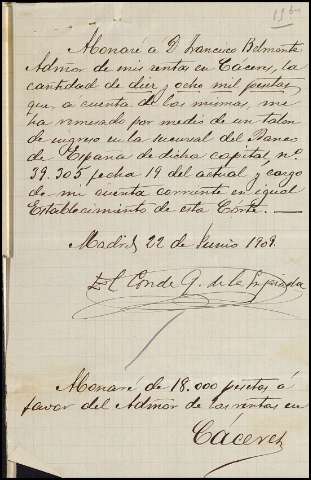 Abonaré á D. Francisco Belmonte
Admor de mis rentas en Cáceres, la
cantidad de diez y ocho mil pesetas
que, a cuenta de las mismas, me
ha remesado por medio de un talon
de ingreso en la sucursal del Banco
de España de dicha capital, nº
39.305 fecha 19 del actual y cargo
de mi cuenta corriente en igual
Establecimiento de esta Corte.
Madrid, 22 de Junio 1909.
El Conde de la
Abonaré de 18.000 pesetas á
favor del Admor de las rentas en
Cáceres